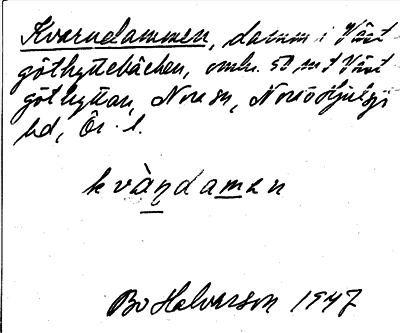 Kvarndammen, damm i Väst
göthyttebäcken, omkr. 50 m t Väst
göthyttan, Nora sn, Nora o Hjulsjö
hd, Ör. l.
kvàṇdamen
Bo Halvarson 1947